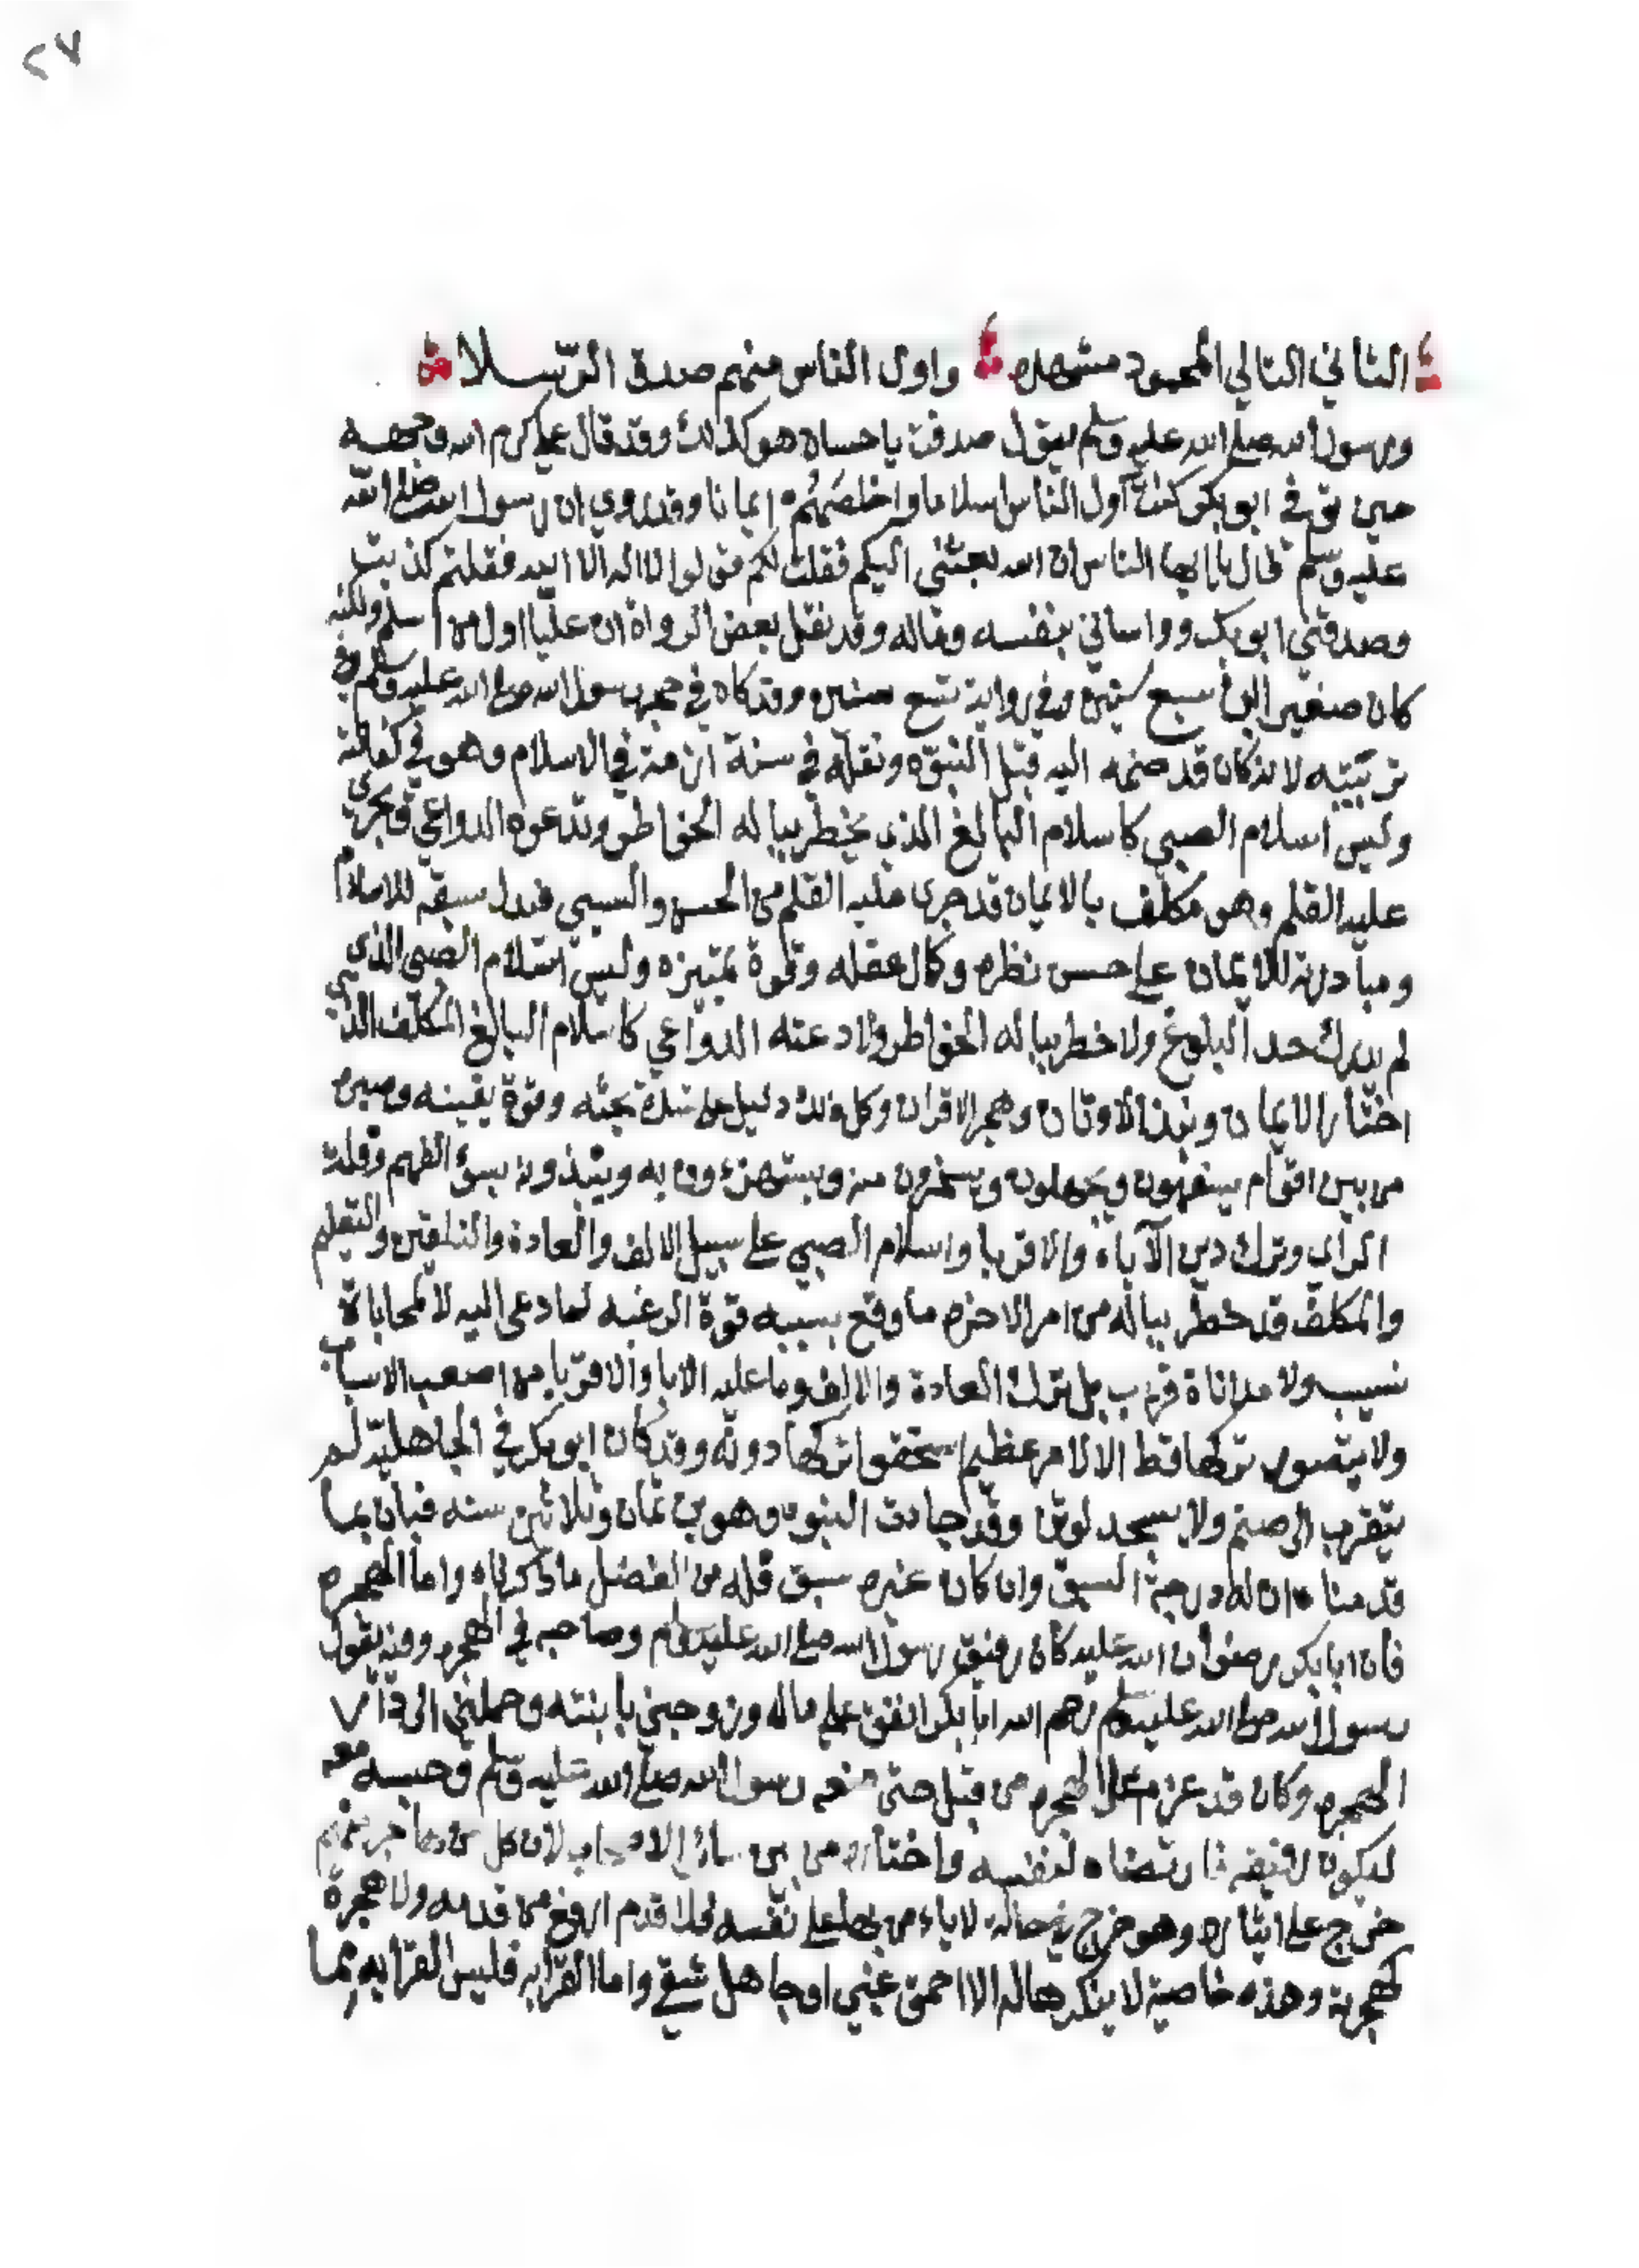 ٢٧
الثاني التالي المحمود مشهده واول الناس منهم صدق الرّسلا
ورسول الله صلى الله عليه وسلم يقول صدقت يا حسان هو كذلك وقد قال علي كرم الله وجهه
حين توفي ابو بكر كنت اول الناس اسلاما واخلصهم ايمانا وقد روي ان رسول الله صلى الله
عليه وسلم قال يا ايها الناس ان الله بعثني اليكم فقلت لكم قولوا لا اله الا الله فقلتم كذبت
وصدقني ابو بكر وواساني بنفسه وماله وقد نقل بعض الرواة ان عليا اول من اسلم ولكنه
كان صغيرا ابن سبع سنين وفي رواية تسع سنين وقد كان في حجر رسول الله صلى الله عليه وسلم وفي
تربيته لانه كان قد ضمه اليه قبل النبوّه ونقله في سنة ازمة في الاسلام وهو في كفالته
وليس اسلام الصبي كاسلام البالغ الذي يخطر بباله الخواطر وتدعوه الدواعي ويجري
عليه القلم وهو مكلف بالايمان قد جرى عليه القلم من الحسن والسيي فدل سبقه للاسلام
ومبادرته للايمان على حسن نظره وكمال عقله وقوة تمييزه وليس اسلام الصبي الذي
لم يدرك حد البلوغ ولا خطر بباله الخواطر ولا دعته الدواعي كاسلام البالغ المكلف الذي
اختار الايمان ونبذ الاوثان وهجر الاقران وكل ذلك دليل على شدة محبته وقوة يقينه وصبره
من بين اقوام يسفهون ويجهلون ويسخرون منه ويستهزءون به وينبذونه بسوء الفهم وقلت
الراي وترك دين الآباء والاقربا واسلام الصبي على سبيل الالف والعادة والتلقين والتعليم
والمكلف قد خطر بباله من امر الاخره ما وقع بسببه قوة الرغبه لما دعى اليه لا لمحاباة
نسيب ولا مداناة قريب بل ترك العادة والالف وما عليه الابا والاقربا من اصعب الاسباب
ولا يتصور تركها قط الا لامر عظيم استحقوا تركها دونه وقد كان ابو بكر في الجاهلية لم
يتقرب الى صنم ولا سجد لوثن وقد جاءت النبوه وهو بن ثمان وثلاثين سنه فبان بما
قدمناه ان له درجة السبق وان كان غيره سبق فله من الفضل ما ذكرناه واما الهجره
فان ابا بكر رضوان الله عليه كان رفيق رسول الله صلى الله عليه وسلم وصاحبه في الهجره وفيه يقول
رسول الله صلى الله عليه وسلم رحم الله ابا بكر انفق علي ماله وزوجني بابنته وحملني الى دار
الهجره وكان قد عزم على الهجره من قبل حتى منعه رسول الله صلى الله عليه وسلم وحبسه معه
ليكون رفيقه فارتضاه لنفسه واختاره من بين سائر الاصحاب لان كل من هاجر منهم
خرج على ايثاره وهو خرج في حاله لا ياء من بها على نفسه فلا قدم ارفع من قدمه ولا هجرة
كهجرته وهذه خاصية لا ينكرها له الا احمق غبي او جاهل شقي واما القرابه فليس القرابه بما